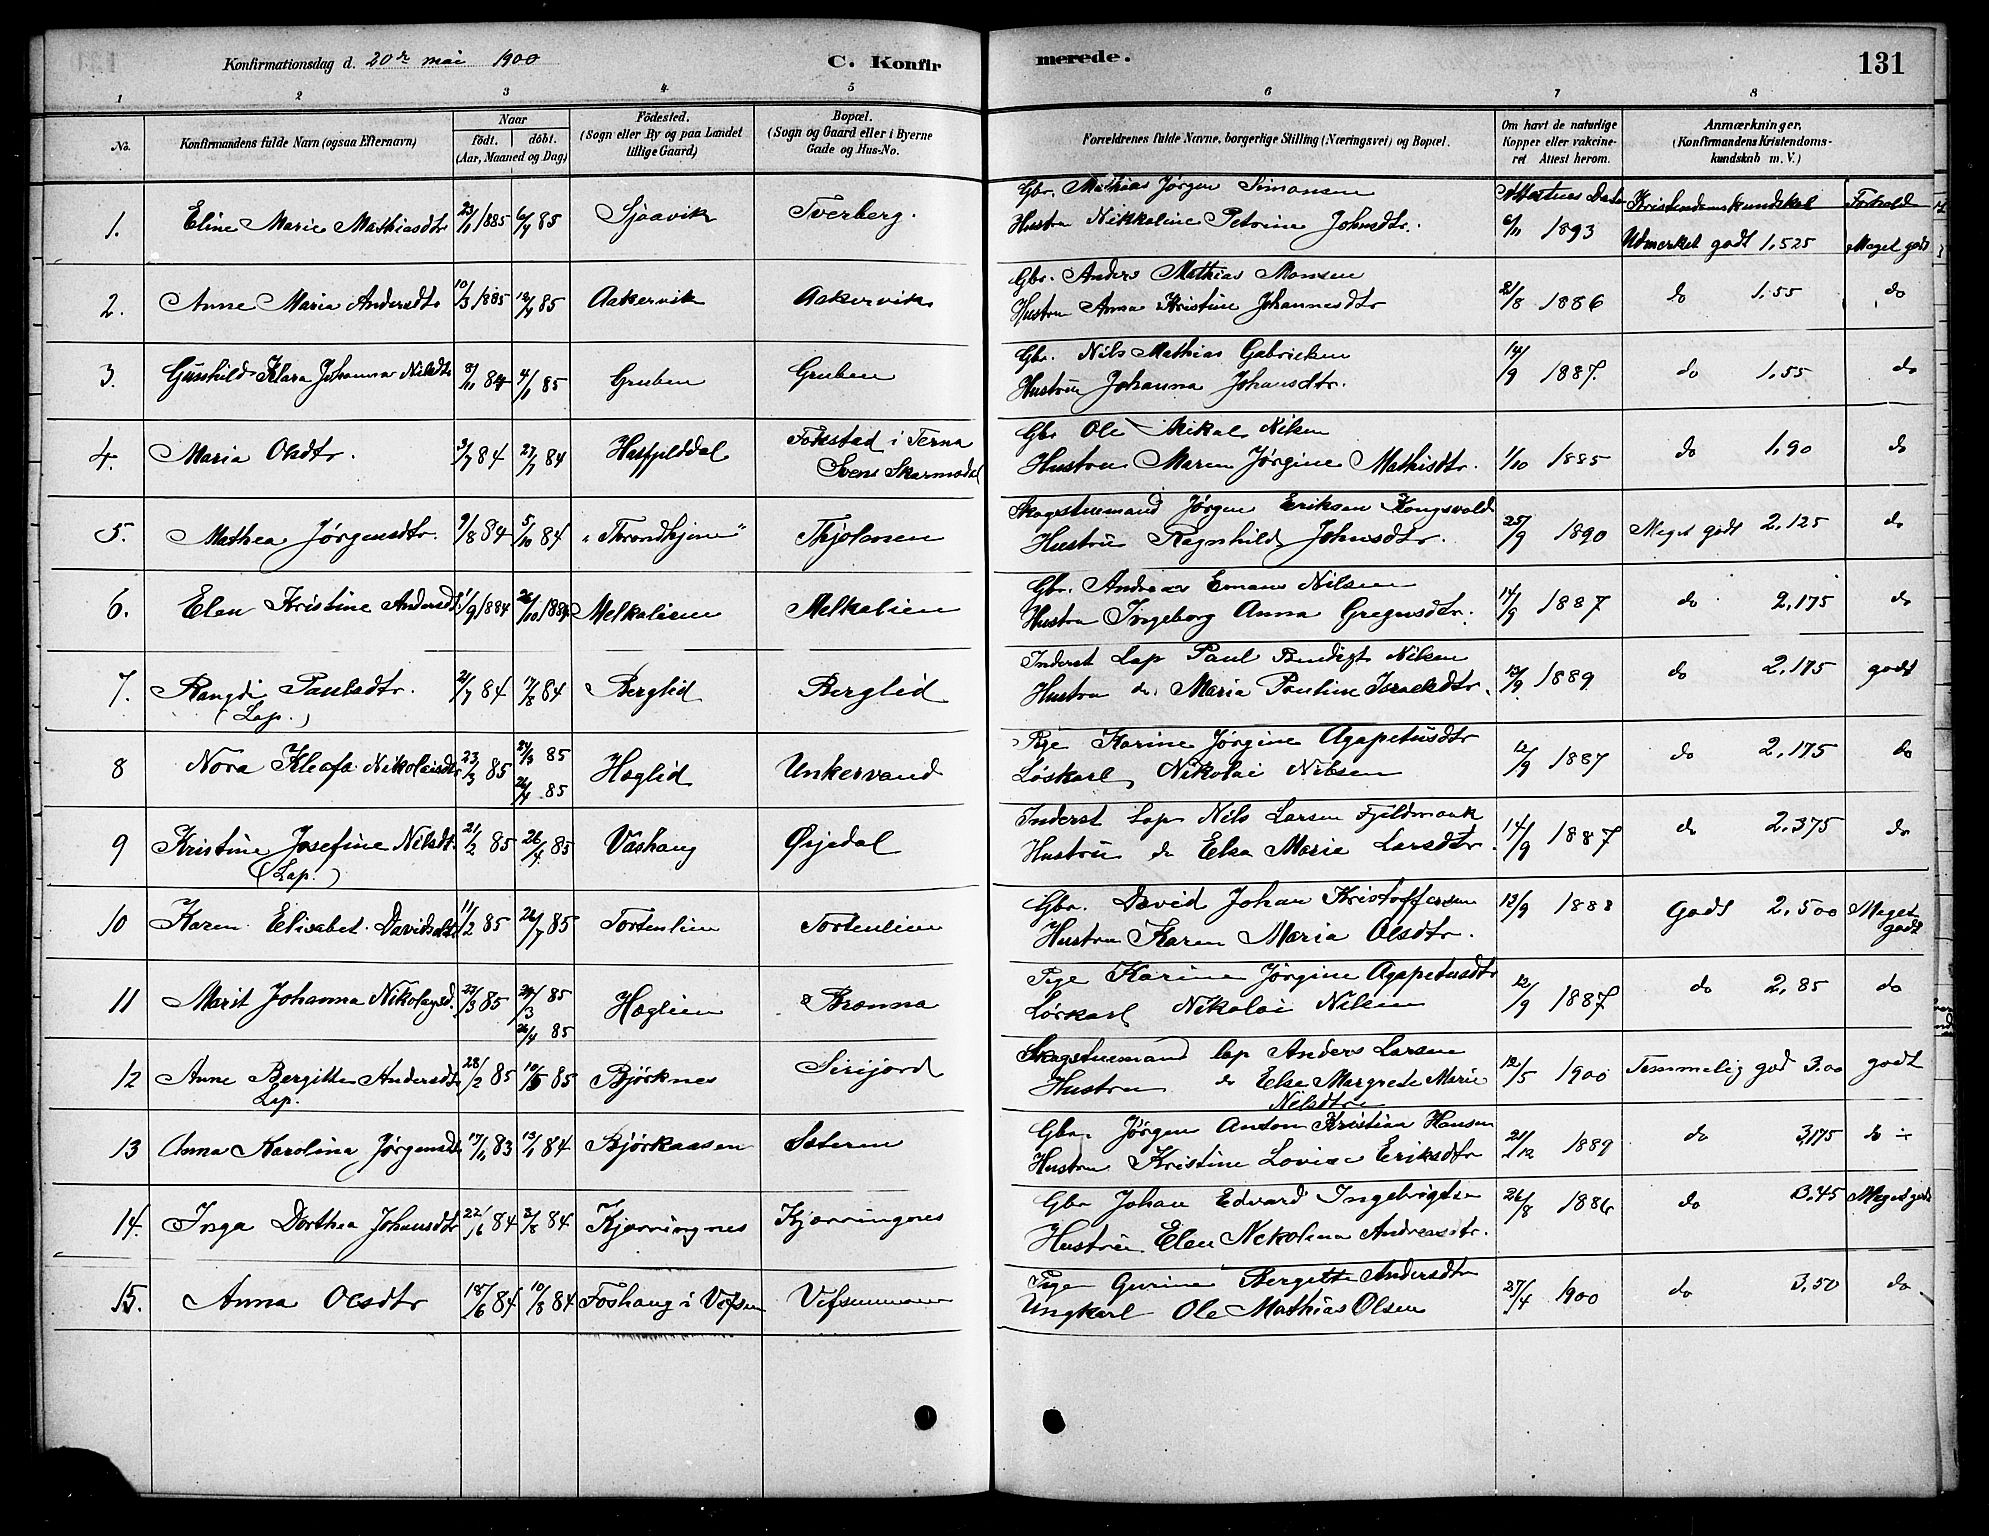 Konfirmationsdag d. 20de mai 1900
C. Konfirmerede.
131
1 2 3 4 5 6 7 8
No.
Konfirmandens fulde Navn (ogsaa Efternavn)
Naar
født. døbt.
(Aar, Maaned og Dag)
Fødested.
(Sogn eller By og paa Landet
tillige Gaard)
Bopæl.
(Sogn og Gaard eller i Byerne
Gade og Hus-No.
Forældrenes fulde Navne, borgerlige Stilling (Næringsvei) og Bopæl.
Om havt de naturlige
Kopper eller vakcine-
ret Attest herom.
Anmærkninger.
(Konfirmandens Kristendoms-
kundskab m. V.)
Attestens Dato Kristendomskundskab Forhold
1. Eline Marie Mathiasdtr 23/1 1885 6/4 85 Sjaavik Tverberg. Gbr. Mathias Jørgen Simonsen
Hustru Nikkoline Petrine Johnsdtr. 6/11 1893 Udmerket godt 1,525 Meget godt
2. Anne Maria Andersdtr 10/3 1885 12/4 85 Aakervik Aakervik Gbr. Anders Mathias Monsen
Hustru Anna Kristine Johannesdtr 21/8 1886 do 1,55 do
3. Gunhild Klara Johanna Nilsdtr 8/11 84 4/1 85 Gruben Gruben Gbr. Nils Mathias Gabrielsen
Hustru Johanna Johansdtr. 14/9 1887. do 1,55 do
4. Maria Olsdtr. 3/7 84 27/7 84 Hasfjelddal Fokstad i Terna
Svens Skarmodal Gbr Ole Mikal Nilsen
Hustru Maren Jørgine Mathisdtr. 1/10 1885 do 1,90 do
5. Mathea Jørgensdtr. 9/8 84 5/10 84 "Throndhjem" Thjolanen Skogstuemand Jørgen Eriksen Kongsvold
Hustru Ragnhild Johnsdtr. 25/9 1890 Meget godt 2,125 do
6. Elen Kristine Andersdtr 1/9 1884 26/10 1884 Melkalien Melkalien Gbr. Andreas Emans Nilsen
Hustru Ingeborg Anna Gregusdtr. 14/9 1887 do 2,175 do
7. Rangdi Paulsdtr.
(Lap.) 21/7 84 17/8 84 Berglid Berglid Inderst Lap Paul Bendigt Nilsen
Hustru do. Maria Pauline Israelsdtr. 13/9 1889 do 2,175 godt
8 Nora Kleofa Nikolaisdtr 23/3 85 24/3 85
26/4 85 Haglid Unkervand Pige Karine Jørgine Agapetusdtr
Løskarl Nikolai Nilsen 12/9 1887 do 2,175 do
9 Kristine Josefine Nilsdt.
(Lap.) 21/2 85 26/4 85 Vashaug Ørjedal Inderst Lap Nils Larsen Fjeldmonk
Hustru do Elsa Marie Larsdtr. 14/9 1887 do 2,375 do
10 Karen Elisabet Davidsdtr 11/2 85 26/7 85 Tortenlien Tortenlien Gbr. David Johan Kristoffersen
Hustru Karen Maria Olsdtr. 13/9 1888 Godt 2,500 Meget
godt
11 Marit Johanna Nikolaysd. 23/3 85 24/3 85
26/4 85 Haglien Brønna Pige Karine Jørgine Agapetusdtr
Løskarl Nikolai Nilsen 12/9 1887 do 2,85 do
12 Anne Bergitte Andersdtr
Lap. 28/2 85 10/5 85 Bjørknes Sirijord Skogstuemand lap Anders Larsen
Hustru do Elsa Margrete Marie
Nilsdtr 12/5 1900 Temmelig god 3.00 godt
13 Anna Karolina Jørgensdtr 17/11 83 13/1 84 Bjørkaasen Sæteren Gbr. Jørgen Anton Kristian Hansen
Hustru Kristine Lovise Eriksdtr 21/12 1889 do 3,175 do ÷
14. Inga Dorthea Johansdtr 22/6 84 3/8 84 Kjærringnes Kjærringnes Gbr Johan Edvard Ingebrigtsen
Hustru Elen Nekolina Andreasdtr. 26/8 1886 do 3,45 Meget godt
15. Anna Olsdtr 18/6 84 10/8 84 Foshaug i Vefsen Vefsenmoen Pige Gurine Bergitte Andersdtr
Ungkarl Ole Mathias Olsen 27/4 1900 do 3,50 do